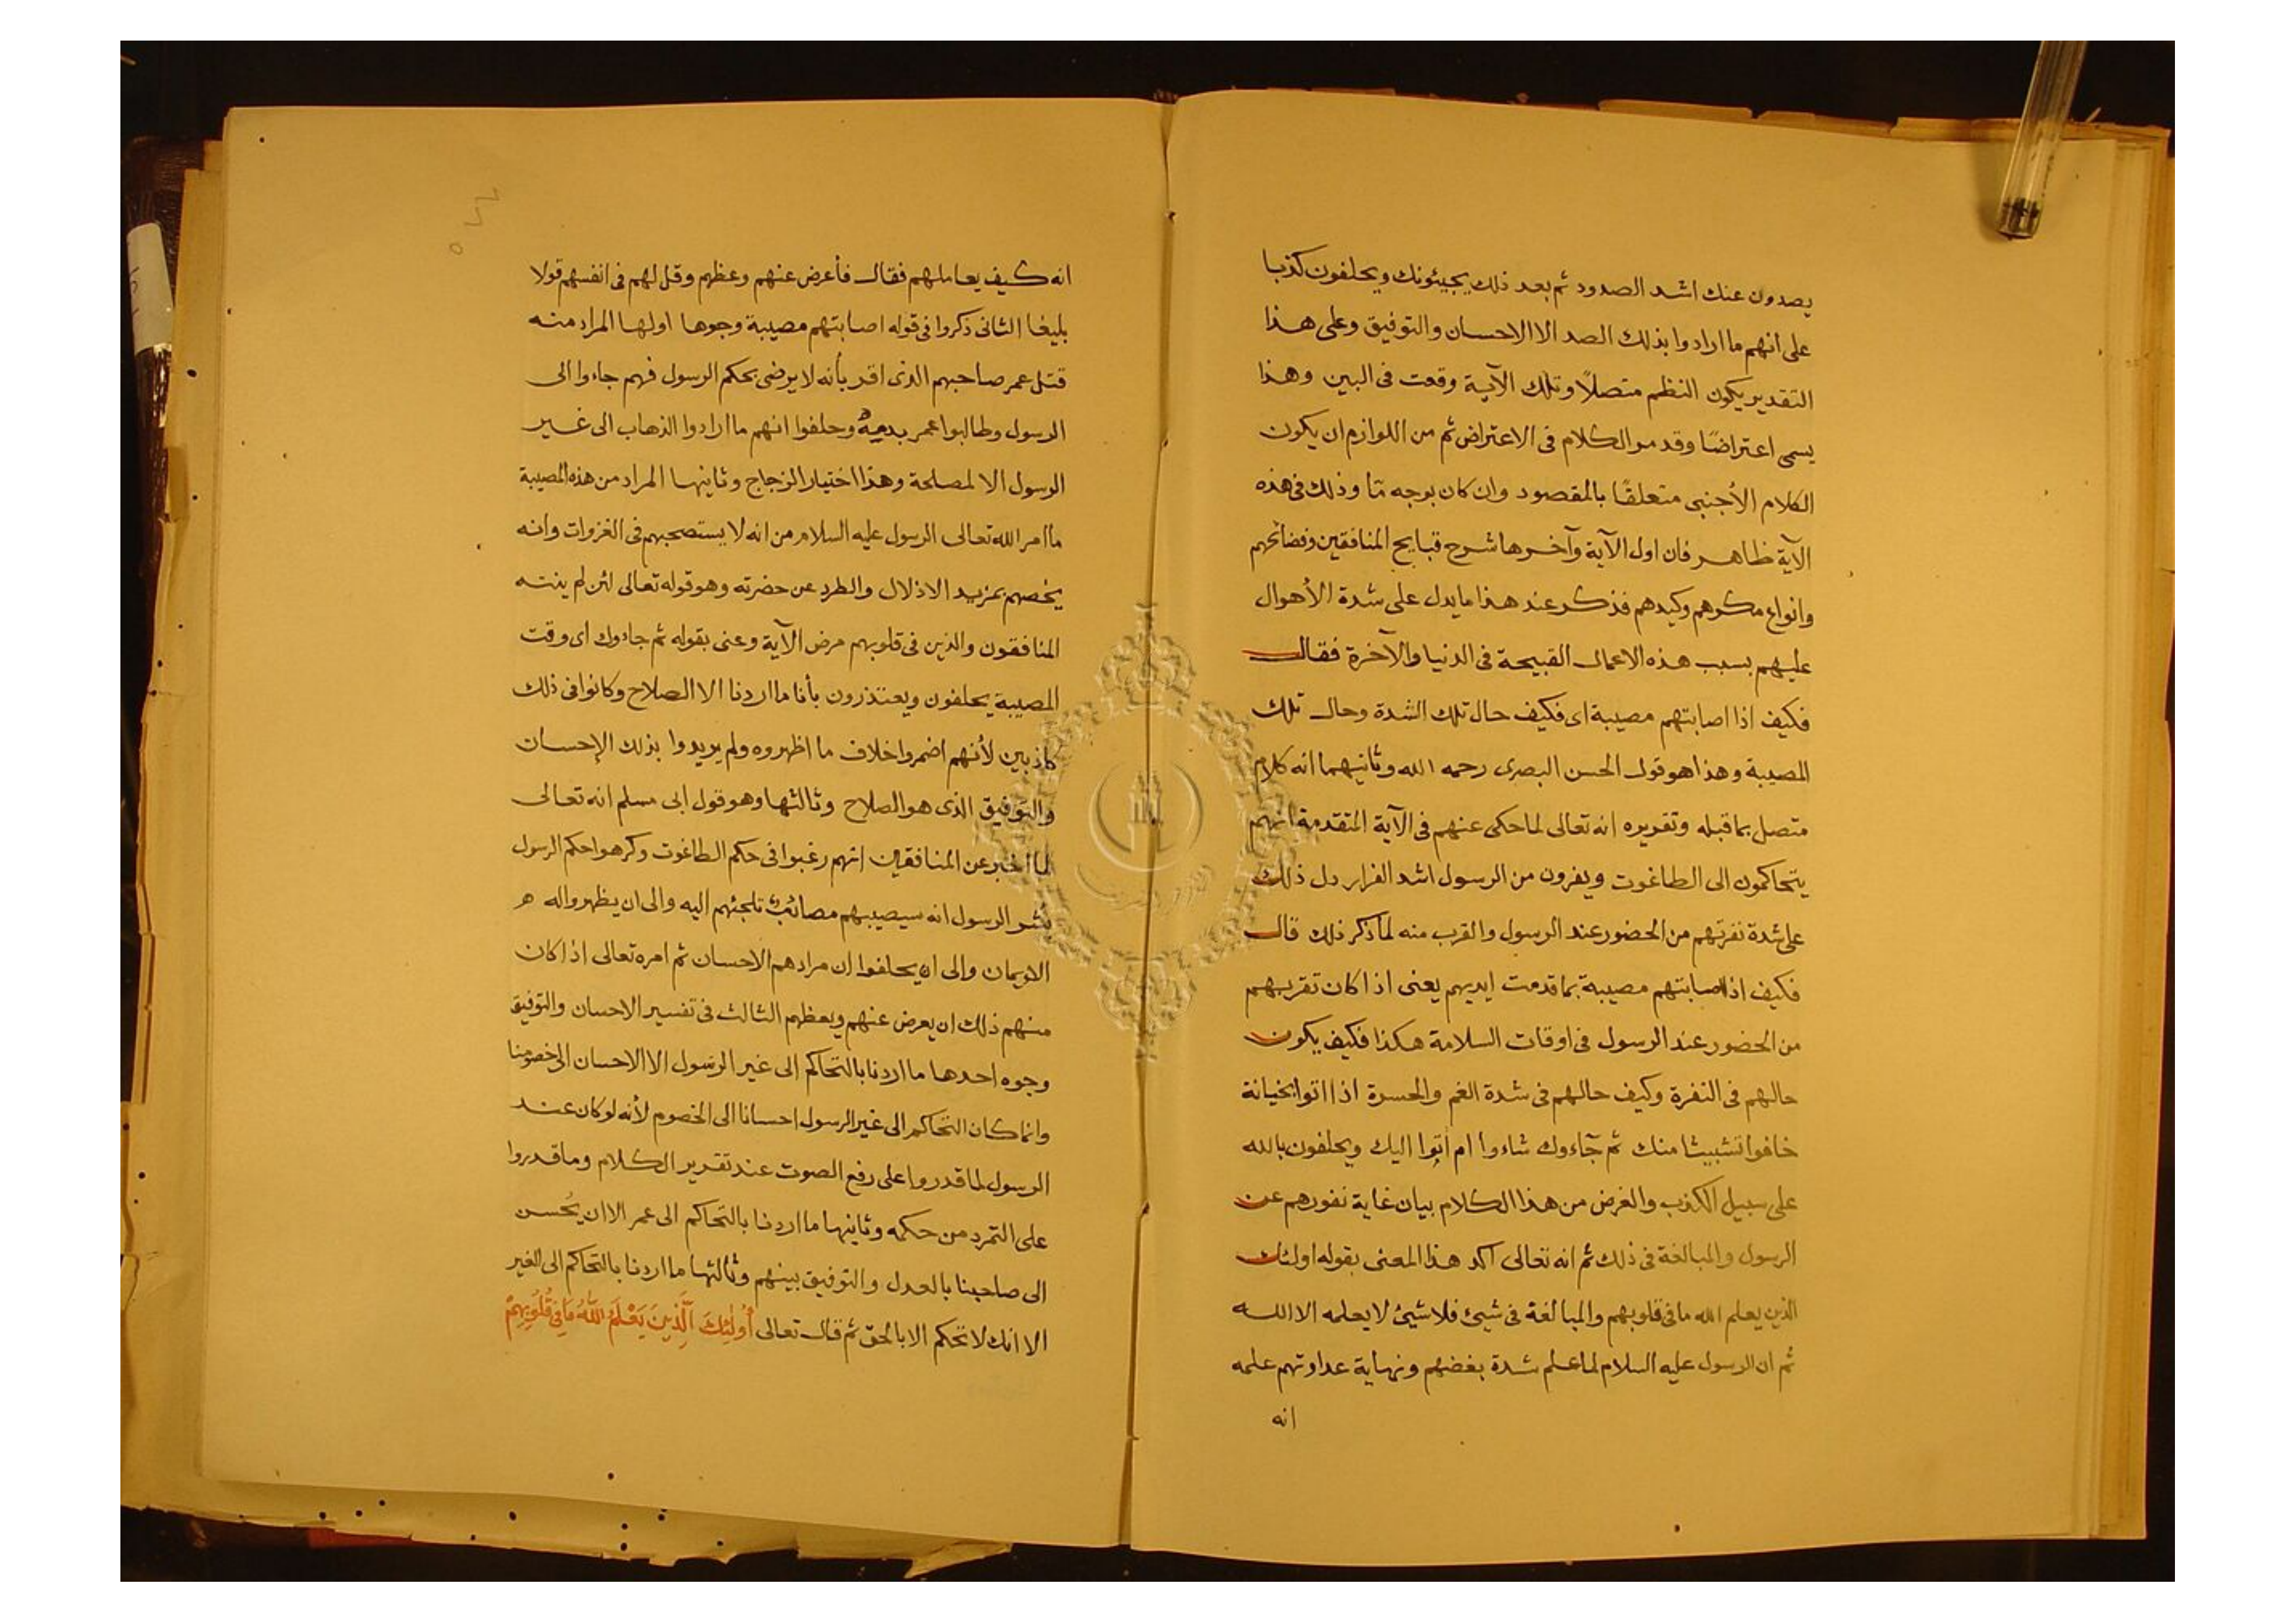 يصدون عنك اشد الصدود ثم بعد ذلك يجيئونك ويحلفون كذبا
على انهم ما ارادوا بذلك الصد الا الاحسان والتوفيق وعلى هذا
التقدير يكون النظم متصلاً وتلك الآية وقعت فى البين وهذا
يسمى اعتراضًا وقد مر الكلام فى الاعتراض ثم من اللوازم ان يكون
الكلام الأجنبى متعلقًا بالمقصود وان كان بوجه مّا وذلك فى هذه
الآية ظاهر فان اول الآية وآخرها شرح قبايح المنافقين وفضائحهم
وانواع مكرهم وكيدهم فذكر عند هذا ما يدل على شدة الأهوال
عليهم بسبب هذه الاعمال القبيحة فى الدنيا والآخرة فقال
فكيف اذا اصابتهم مصيبة اى فكيف حال تلك الشدة وحال تلك
المصيبة وهذا هو قول الحسن البصرى رحمه الله وثانيهما انه كلام
متصل بما قبله وتقريره انه تعالى لما حكى عنهم فى الآية المتقدمة انهم
يتحاكمون الى الطاغوت ويفرون من الرسول اشد الفرار دل ذلك
على شدة نفرتهم من الحضور عند الرسول والقرب منه لما ذكر ذلك قال
فكيف اذا اصابتهم مصيبة بما قدمت ايديهم يعنى اذا كان تقربهم
من الحضور عند الرسول فى اوقات السلامة هكذا فكيف يكون
حالهم فى النفرة وكيف حالهم فى شدة الغم والحسرة اذا اتوا بخيانة
خافوا تشبيثا منك ثم جآءوك شاءوا ام أبوا اليك ويحلفون بالله
على سبيل الكذب والغرض من هذا الكلام بيان غاية نفورهم عن
الرسول والمبالغة فى ذلك ثم انه تعالى اكد هذا المعنى بقوله اولئك
الذين يعلم الله ما فى قلوبهم والمبالغة فى شيئ فلا شيئ لا يعلمه الا الله
ثم ان الرسول عليه السلام لما علم شدة بغضهم ونهاية عداوتهم علمه
انه
انه كيف يعاملهم فقال فأعرض عنهم وعظهم وقل لهم فى انفسهم قولا
بليغا الثانى ذكروا فى قوله اصابتهم مصيبة وجوها اولها المراد منه
قتل عمر صاحبهم الذى اقر بأنه لا يرضى بحكم الرسول فهم جاءوا الى
الرسول وطالبوا عمر بدمه وحلفوا انهم ما ارادوا الذهاب الى غير
الرسول الا لمصلحة وهذا اختيار الزجاج وثانيها المراد من هذه المصيبة
ما امر الله تعالى الرسول عليه السلام من انه لا يستصحبهم فى الغزوات وانه
يخصهم بمزيد الاذلال والطرد عن حضرته وهو قوله تعالى لئن لم ينته
المنافقون والذين فى قلوبهم مرض الآية وعنى بقوله ثم جاءوك اى وقت
المصيبة يحلفون ويعتذرون بأنا ما اردنا الا الصلاح وكانوا فى ذلك
كاذبين لأنهم اضمروا خلاف ما اظهروه ولم يريدوا بذلك الإحسان
والتوفيق الذى هو الصلاح وثالثها وهو قول ابى مسلم انه تعالى
لما اخبر عن المنافقين انهم رغبوا فى حكم الطاغوت وكرهوا حكم الرسول
بُشر الرسول انه سيصيبهم مصائب تلجئهم اليه والى ان يظهروا له
الايمان والى ان يحلفوا ان مرادهم الاحسان ثم امره تعالى اذا كان
منهم ذلك ان يعرض عنهم ويعظهم الثالث فى تفسير الاحسان والتوفيق
وجوه احدها ما اردنا بالتحاكم الى غير الرسول الا الاحسان الى خصومنا
وانما كان التحاكم الى غير الرسول احسانا الى الخصوم لأنه لو كان عند
الرسول لما قدروا على رفع الصوت عند تقرير الكلام وما قدروا
على التمرد من حكمه وثانيها ما اردنا بالتحاكم الى عمر الا ان يُحسن
الى صاحبنا بالعدل والتوفيق بينهم وثالثها ما اردنا بالتحاكم الى الغير
الا انك لا تحكم الا بالحق ثم قال تعالى أُولٰئِكَ الَّذِينَ يَعْلَمُ اللّٰهُ مَا فِى قُلُوبِهِمْ